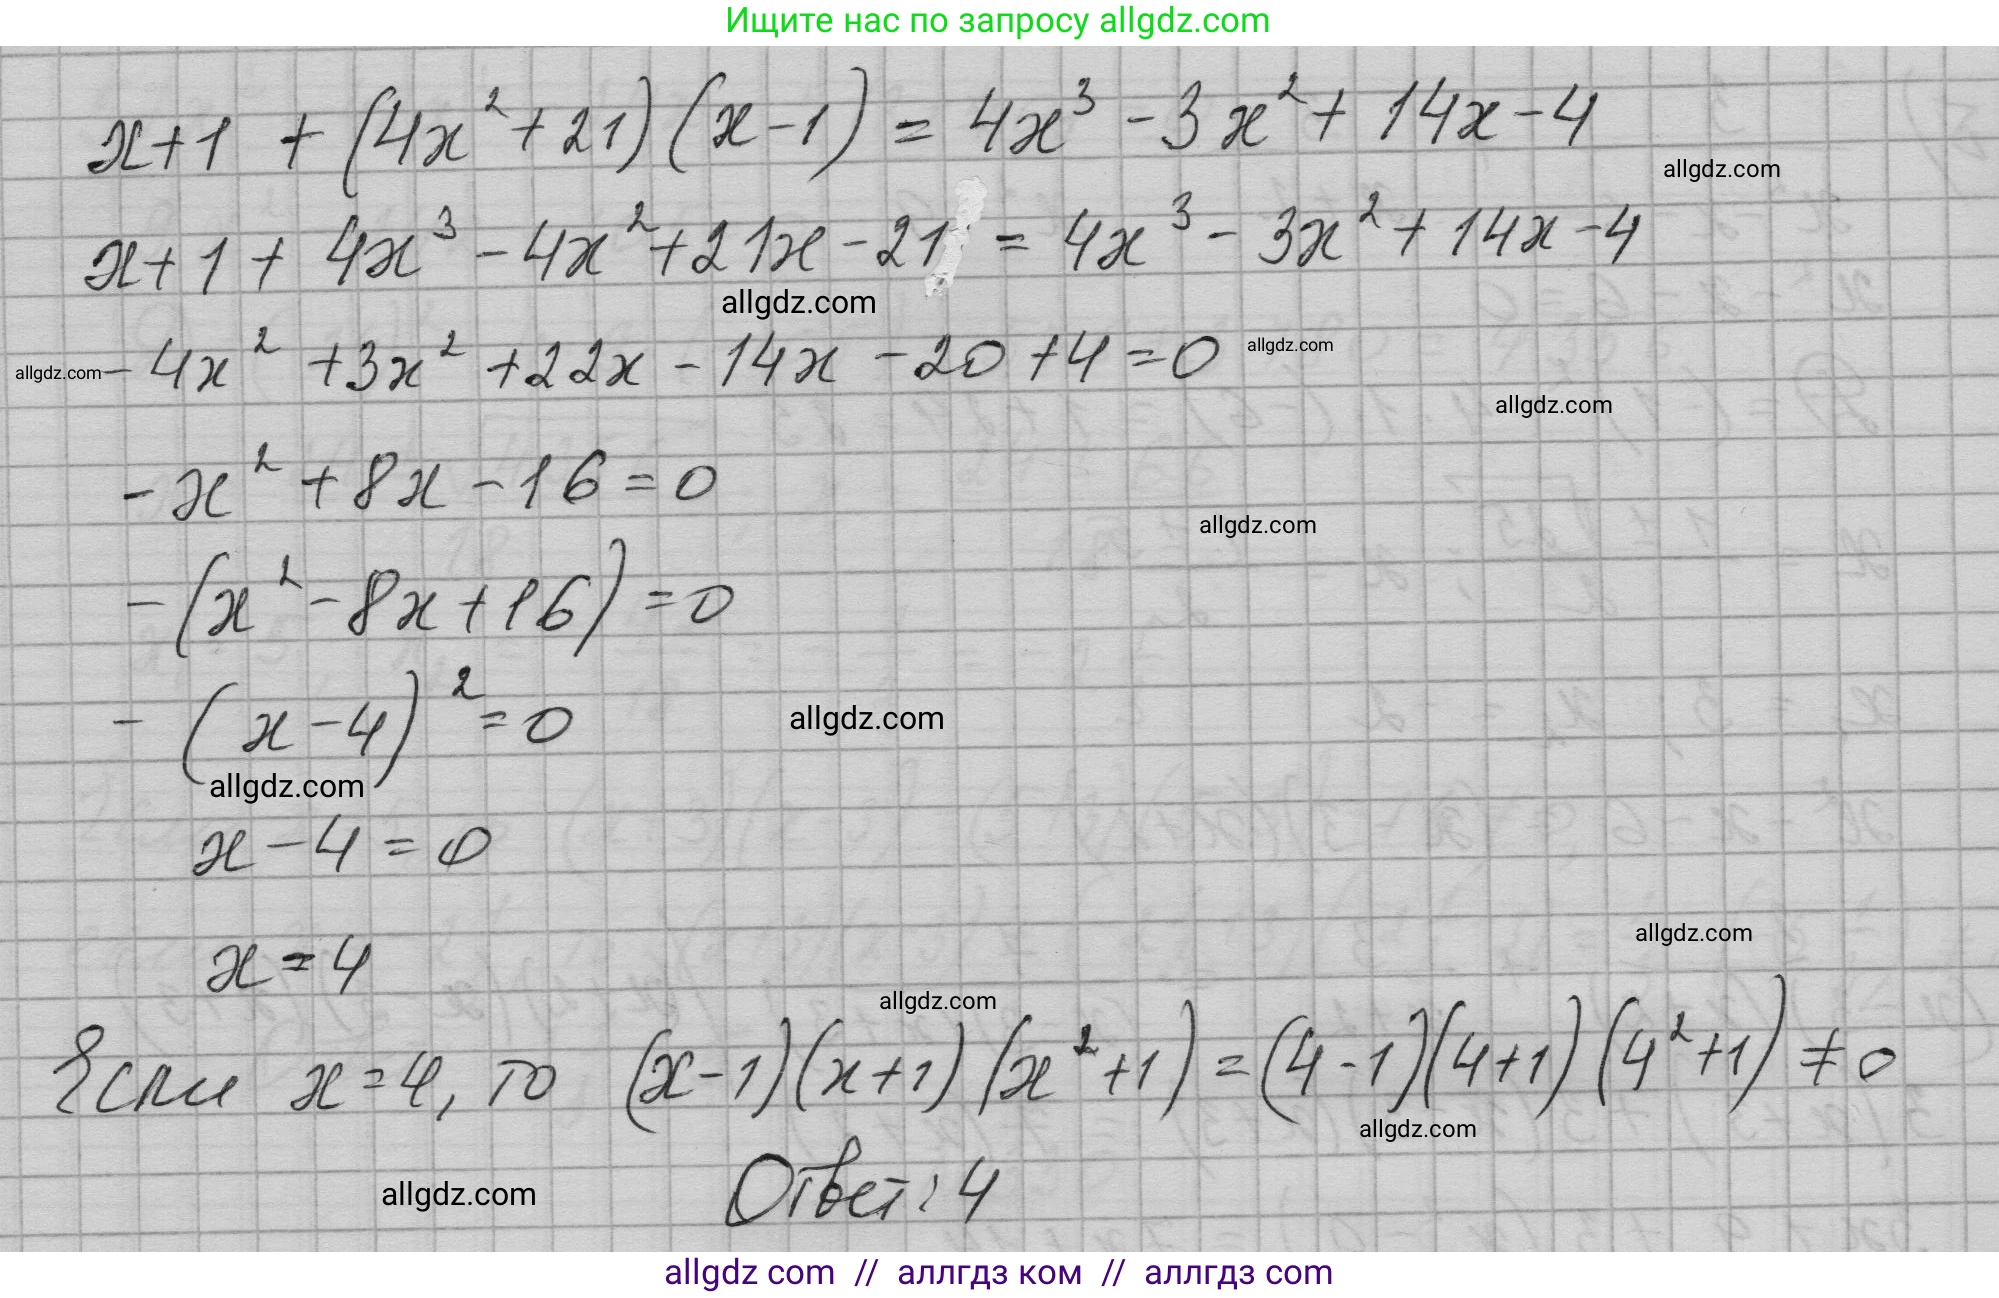 Ищите нас по запросу allgdz.com
x+1 + (4x² + 21)(x-1) = 4x³ - 3x² + 14x - 4
allgdz.com
x+1 + 4x³ - 4x² + 21x - 21 = 4x³ - 3x² + 14x - 4
allgdz.com
allgdz.com
- 4x² + 3x² + 22x - 14x - 20 + 4 = 0
allgdz.com
allgdz.com
- x² + 8x - 16 = 0
allgdz.com
- (x² - 8x + 16) = 0
- (x - 4)² = 0
allgdz.com
allgdz.com
x - 4 = 0
allgdz.com
x = 4
allgdz.com
Если x = 4, то (x-1)(x+1)(x²+1) = (4-1)(4+1)(4²+1) ≠ 0
allgdz.com
Ответ: 4
allgdz.com
allgdz com // аллгдз ком // аллгдз com